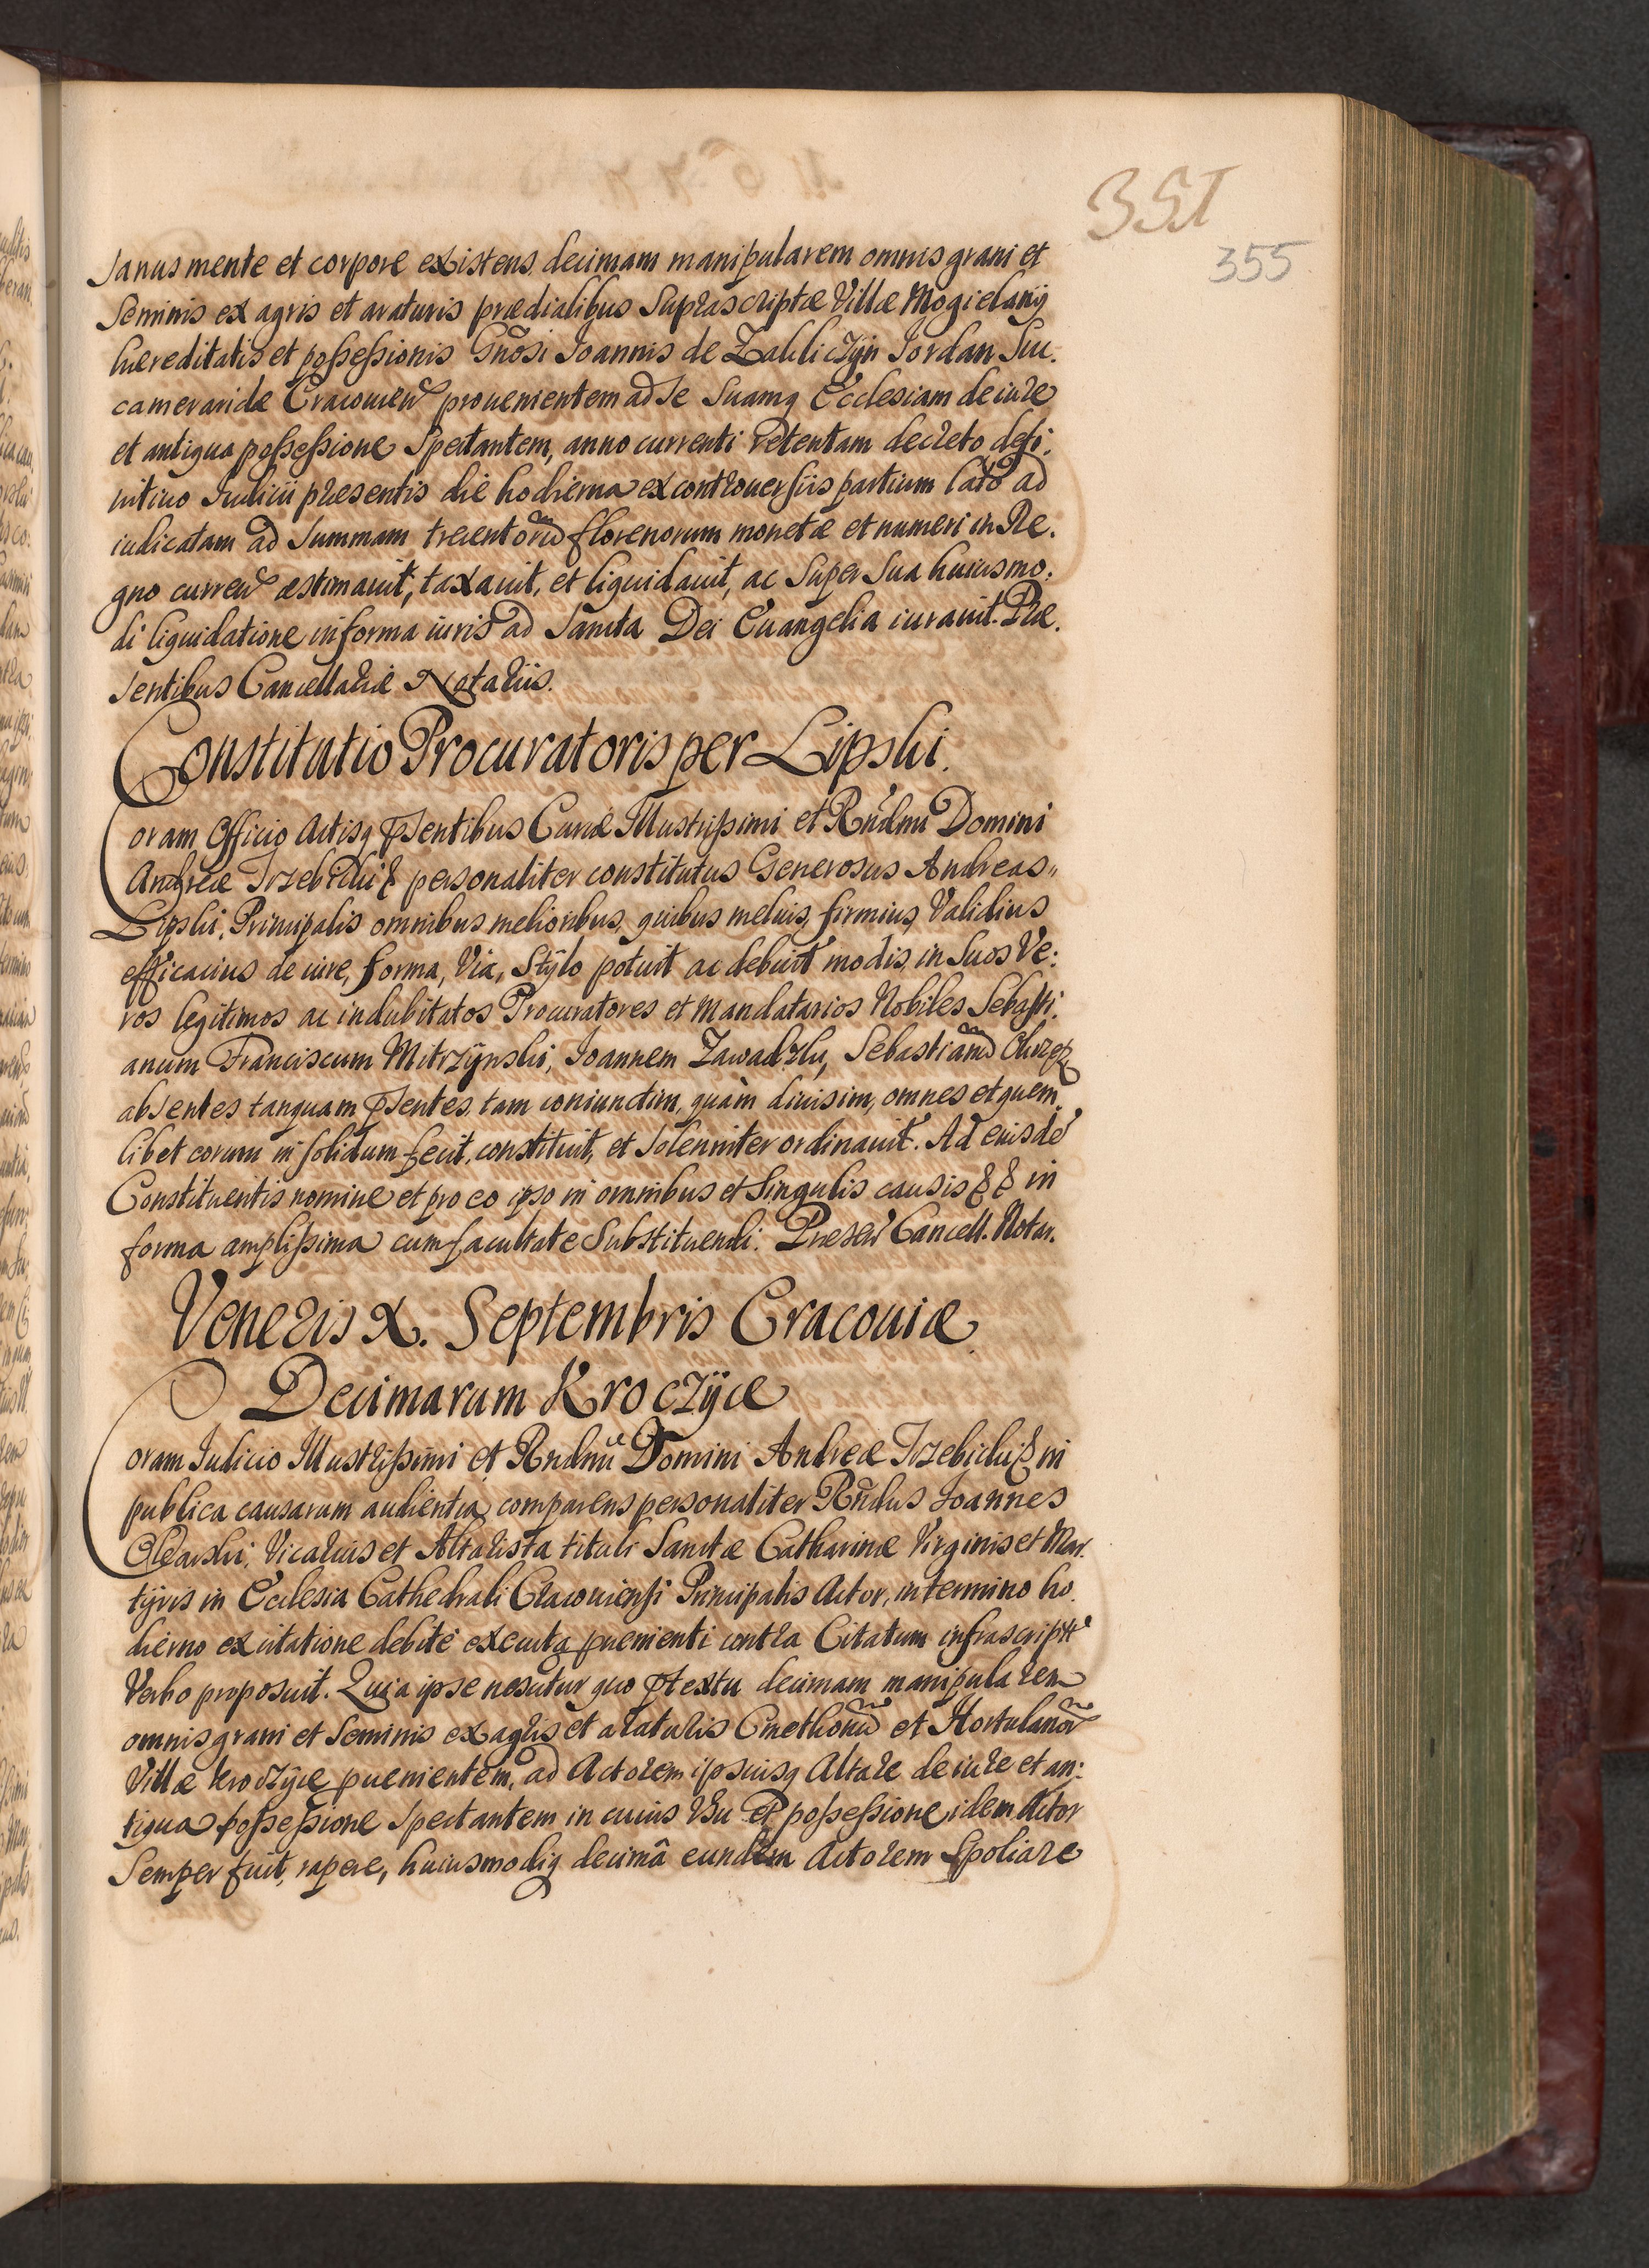 351
355
Sanus mente et corpore existens, decimam manipularem omnis grani et
Seminis ex agris et araturis prædialibus Suprascriptæ Villæ Mogielany
hæreditatis et possessionis Gnõsi Joannis de Zakliczyn Jordan Suc.
cameraridæ Cracouien prouenientem ad se suamq Ecclesiam de iure
et antiqua possessione Spectantem, anno currenti retentam decreto defi:
nitiuo Iudicii præsentis die hodierna ex controuersiis partium lato ad
iudicatam ad Summam trecentorũ florenorum monetæ et numeri in Re.
gno curren æstimauit, taxauit, et liquidauit, ac Super Sua huiusmo:
di liquidatione in forma iuris ad Sancta Dei Euangelia iurauit. Præ.
sentibus Cancellariæ Notariis.
Constitutio Procuratoris per Lipski.
Coram Officio Actisq psentibus Curiæ Illustrissimi et Rndmi Domini
Andreæ Trzebicki & personaliter constitutus Generosus Andreas
Lipski, Principalis omnibus melioribus, quibus melius, firmius, Validius
efficacius de iure, forma, Via, Stylo potuit ac debuit modis, in Suos Ve:
ros legitimos ac indubitatos Procuratores et Mandatarios Nobiles Sebasti.
anum Franciscum Mitrzynski, Joannem Zawadzki, Sebastianũ
absentes tanquam psentes, tam coniunctim, quàm diuisim, omnes et quem
libet eorum in solidum fecit, constituit, et Solenniter ordinauit. Ad eiusdẽ
Constituentis nomine et pro eo ipso in omnibus et Singulis causis & & in
forma amplissima cum facultate Substituendi. Præsen Cancell. Notar.
Veneris X. Septembris Cracouiæ
Decimarum Kroczyce
Coram Iudicio Illustrissimi et Rndmi Domini Andreæ Trzebicki & in
publica causarum audientia comparens personaliter Rñdus Joannes
Olearski, Vicarius et Altarista tituli Sanctæ Catharinæ Virginis et Mar.
tyris in Ecclesia Cathedrali Cracouiensi Principalis Actor, in termino ho.
dierno ex citatione debitè executa puenienti contra Citatum infrascript
Verbo proposuit. Quia ipse nescitur quo ptextu decimam manipularem
omnis grani et Seminis ex agris et araturis Cmethonũ et Hortulanor
Villæ Kroczyce puenientem, ad Actorem ipsiusq Altare de iure et an:
tiqua possessione Spectantem in cuius Vsu et possessione idem Actor
Semper fuit, rapere, huiusmodiq decimâ eundem Actorem Spoliare